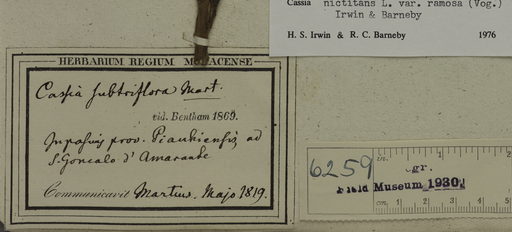 Cassia nictitans L. var. ramosa (Vog.)
Irwin & Barneby
H. S. Irwin & R. C. Barneby 1976
HERBARIUM REGIUM MONACENSE
Cassia subtriflora Mart.
vid. Bentham 1869.
In pascuis prov. Piauhiensis ad
S. Goncalo d'Amarante
Communicavit Martius. Majo 1819.
6259
gr.
Field Museum 1930
in. 1 2
cm. 1 2 3 4 5